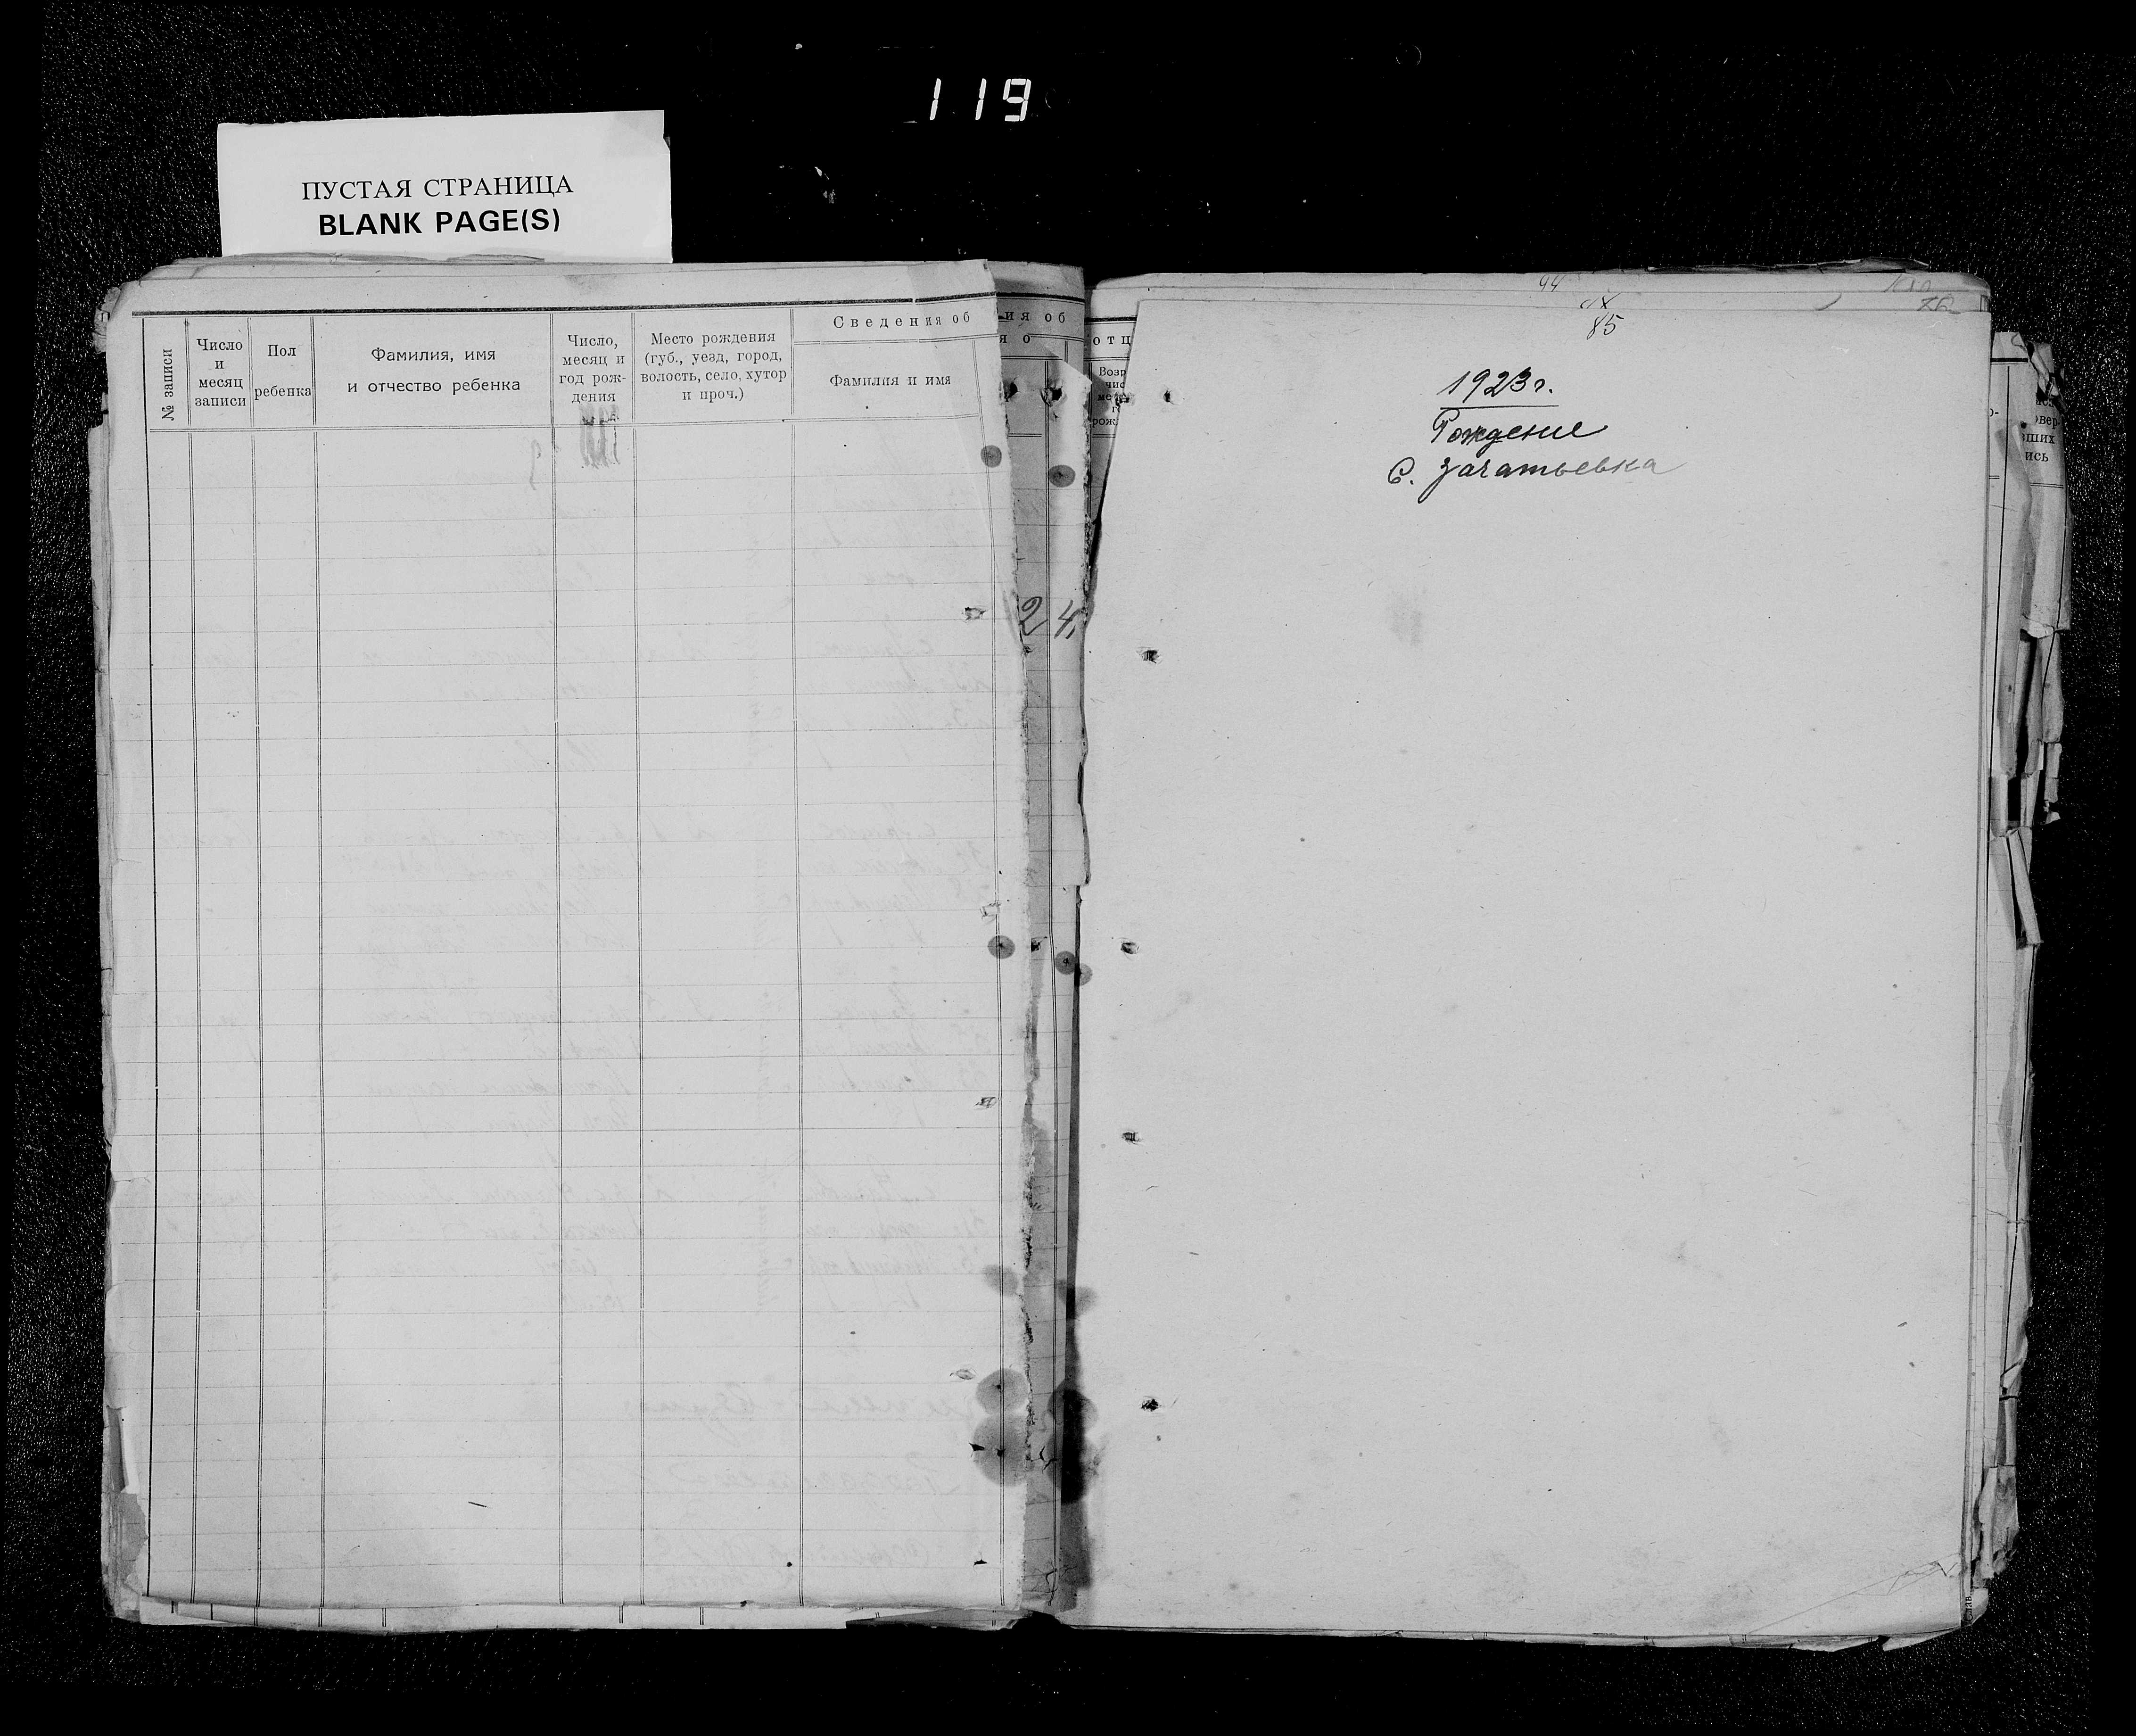 119
ПУСТАЯ СТРАНИЦА
BLANK PAGE(S)
№ записи
Число
и
месяц
записи
Пол
ребенка
Фамилия, имя
и отчество ребенка
Число,
месяц и
год рож-
дения
Место рождения
(губ., уезд, город,
волость, село, хутор
и проч.)
Сведения об
Фамилия и имя
ия об
я о
24
отц
Возр
чис
рож
94
85
1923 г.
Рождение
С. Зачатьевка
вер-
ших
ись